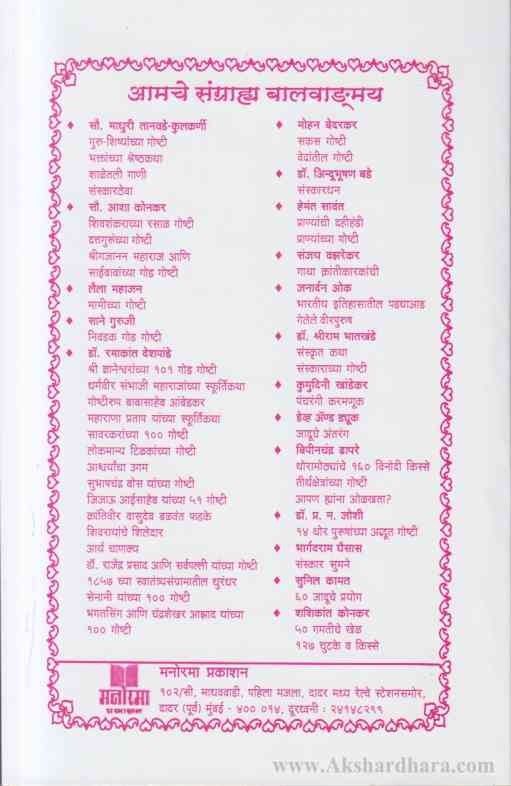 आमचे संग्राह्य बालवाङ्मय
♦ सौ. माधुरी तानवडे-कुलकर्णी
गुरु-शिष्यांच्या गोष्टी
भक्तांच्या श्रेष्ठकथा
शाळेतली गाणी
संस्कारठेवा
♦ सौ. आशा कोनकर
शिवशंकराच्या रसाळ गोष्टी
दत्तगुरुंच्या गोष्टी
श्रीगजानन महाराज आणि
साईबाबांच्या गोड गोष्टी
♦ लैला महाजन
मामीच्या गोष्टी
♦ साने गुरुजी
निवडक गोड गोष्टी
♦ डॉ. रमाकांत देशपांडे
श्री ज्ञानेश्वरांच्या १०१ गोड गोष्टी
धर्मवीर संभाजी महाराजांच्या स्फूर्तिकथा
गोष्टीरुप बाबासाहेब आंबेडकर
महाराणा प्रताप यांच्या स्फूर्तिकथा
सावरकरांच्या १०० गोष्टी
लोकमान्य टिळकांच्या गोष्टी
आश्चर्यांचा उगम
सुभाषचंद्र बोस यांच्या गोष्टी
जिजाऊ आईसाहेब यांच्या ५१ गोष्टी
क्रांतिवीर वासुदेव बळवंत फडके
शिवरायांचे शिलेदार
आर्य चाणक्य
डॉ. राजेंद्र प्रसाद आणि सर्वपल्ली यांच्या गोष्टी
१८५७ च्या स्वातंत्र्यसंग्रामातील धुरंधर
सेनानी यांच्या १०० गोष्टी
भगतसिंग आणि चंद्रशेखर आझाद यांच्या
१०० गोष्टी
♦ मोहन बेदरकर
सकस गोष्टी
वेदांतील गोष्टी
♦ डॉ. इन्दूभूषण बडे
संस्कारधन
♦ हेमंत सावंत
प्राण्यांची दहीहंडी
प्राण्यांच्या गोष्टी
♦ संजय वझरेकर
गाथा क्रांतीकारकांची
♦ जनार्दन ओक
भारतीय इतिहासातील पडद्याआड
गेलेले वीरपुरुष
♦ डॉ. श्रीराम भातखंडे
संस्कृत कथा
संस्काराच्या गोष्टी
♦ कुमुदिनी खांडेकर
पंचरंगी करमणूक
♦ डेव्ह अँण्ड ड्यूक
जादूचे अंतरंग
♦ बिपीनचंद्र ढापरे
थोरामोठ्यांचे १६० विनोदी किस्से
तीर्थक्षेत्रांच्या गोष्टी
आपण ह्यांना ओळखता?
♦ डॉ. प्र. न. जोशी
१४ थोर पुरुषांच्या अद्भूत गोष्टी
♦ भार्गवराम घैसास
संस्कार सुमने
♦ सुनिल कामत
६० जादूचे प्रयोग
♦ शशिकांत कोनकर
५० गमतीचे खेळ
१२७ चुटके व किस्से
मनोरमा प्रकाशन
१०२/सी, माधववाडी, पहिला मजला, दादर मध्य रेल्वे स्टेशनसमोर,
दादर (पूर्व) मुंबई - ४०० ०१४, दूरध्वनी : २४१४८२९९
मनोरमा
प्रकाशन
www.Akshardhara.com